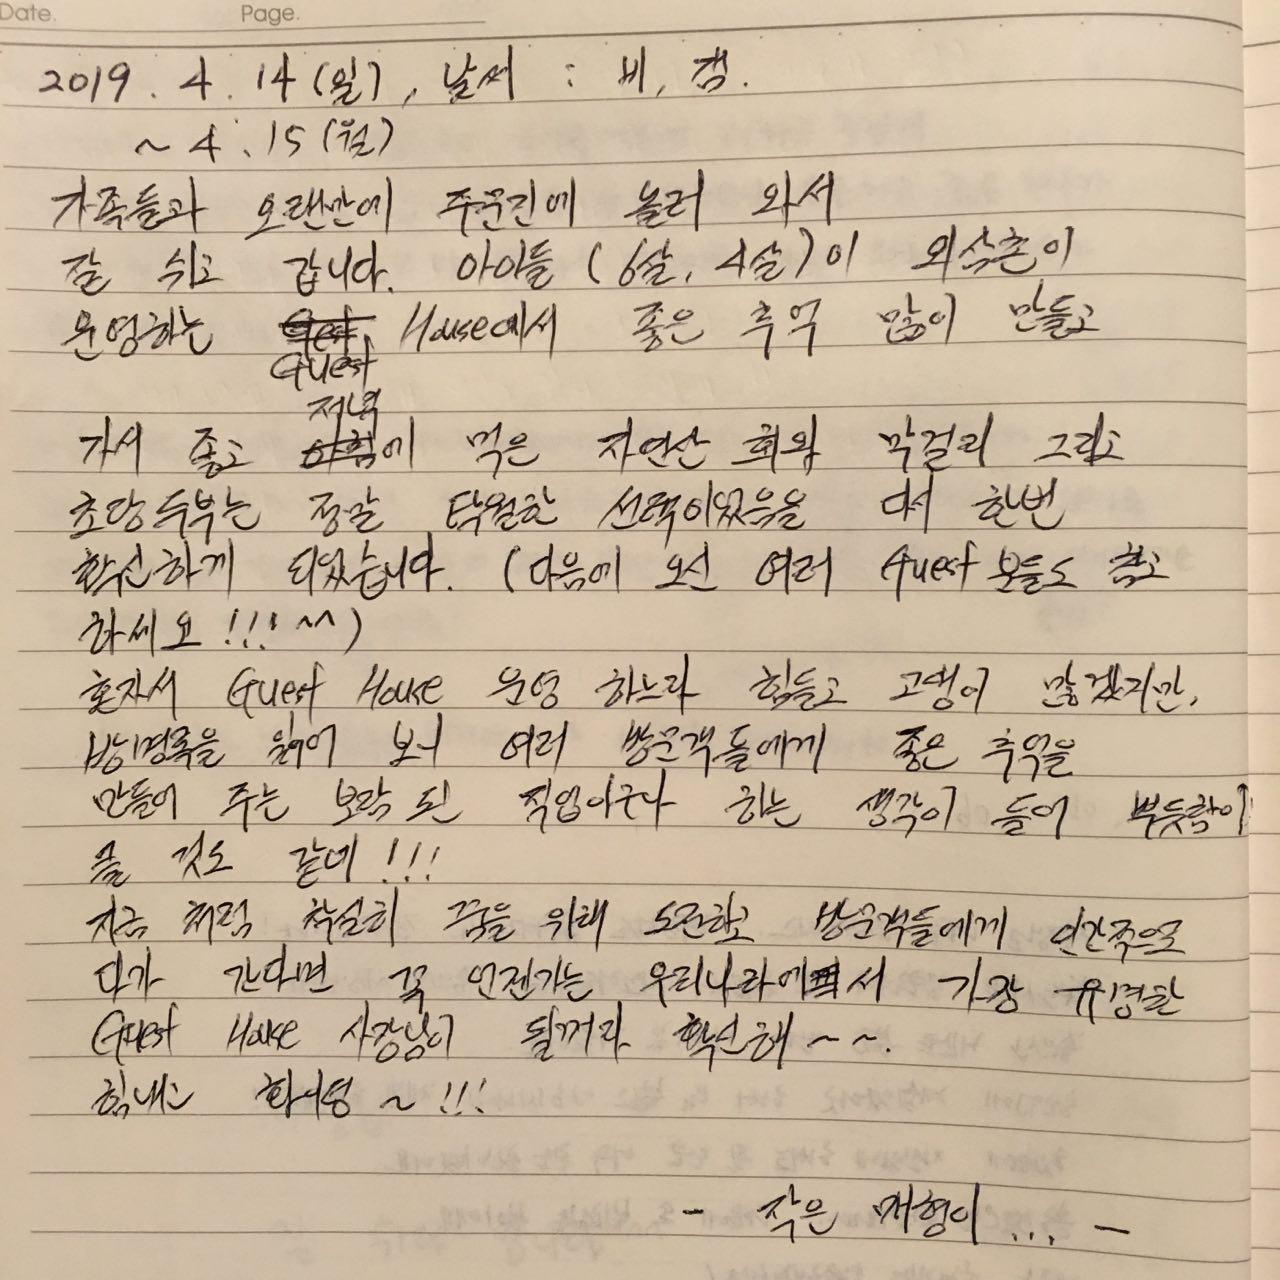 Date. Page.
2019. 4. 14 (일), 날씨 : 비, 갬.
~ 4. 15 (월)
가족들과 오랜만에 주문진에 놀러 와서
잘 쉬고 갑니다. 아이들 (6살, 4살)이 외삼촌이
운영하는 Guest House에서 좋은 추억 많이 만들고
가서 좋고 저녁에 먹은 자연산 회와 막걸리 그리고
초당두부는 정말 탁월한 선택이었음을 다시 한번
확신하게 되었습니다. (다음에 오신 여러 Guest 분들도 참고
하세요!!! ^^)
혼자서 Guest House 운영 하느라 힘들고 고생이 많겠지만,
방명록을 읽어 보니 여러 방문객들에게 좋은 추억을
만들어 주는 보람 된 직업이구나 하는 생각이 들어 뿌듯함이
클 것도 같네!!!
지금 처럼 착실히 꿈을 위해 도전하고 방문객들에게 인간적으로
다가 간다면 꼭 언젠가는 우리나라에서 가장 유명한
Guest House 사장님이 될꺼라 확신해~~.
힘내고 화이팅~!!!
- 작은 매형이... -